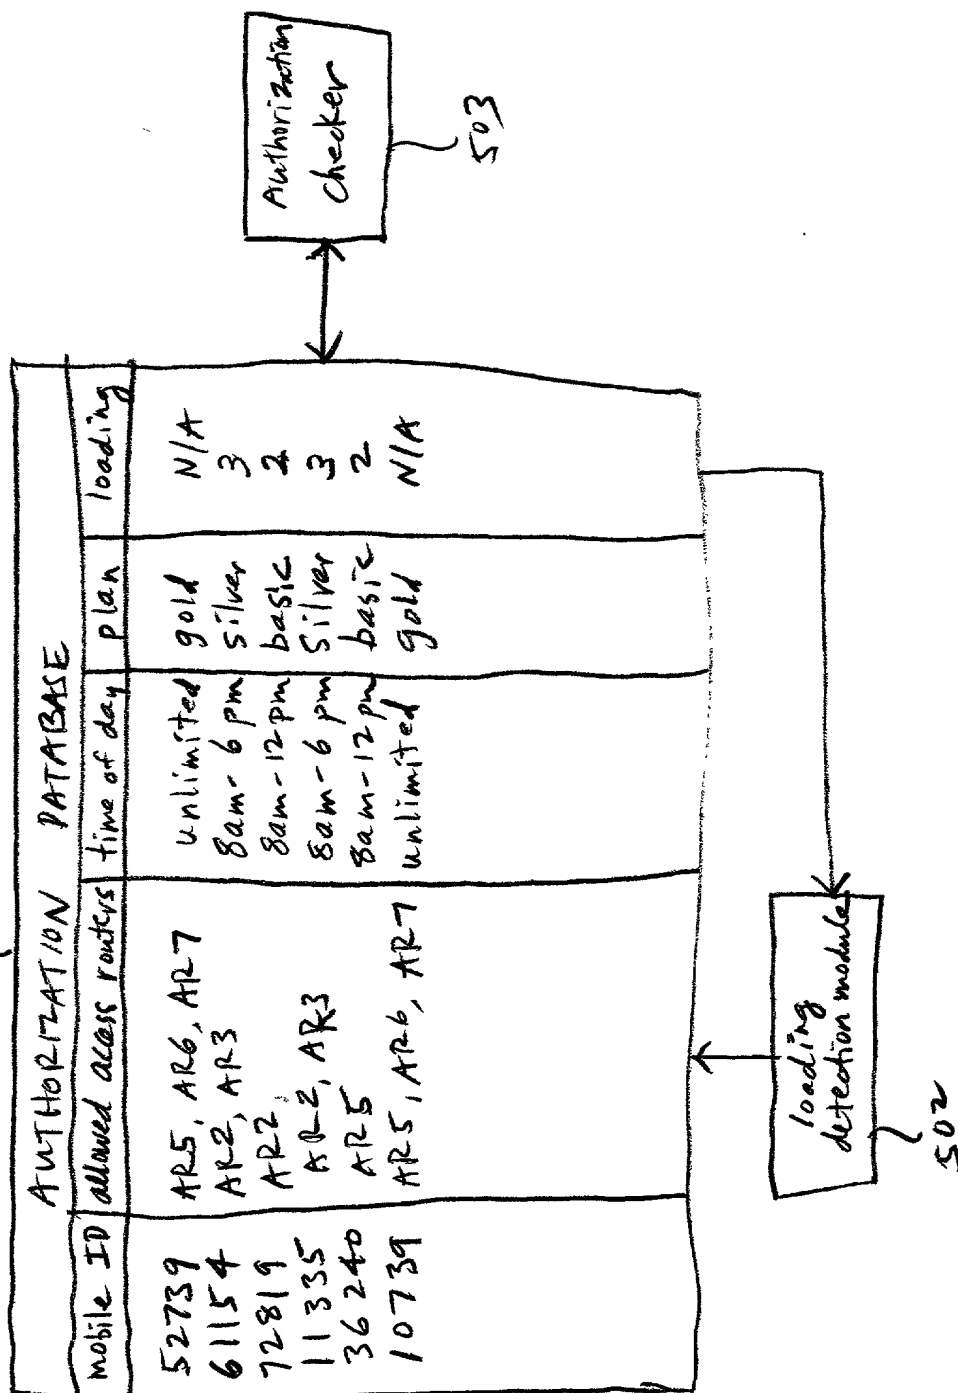 AUTHORIZATION DATABASE
mobile ID allowed access routers time of day plan loading
52739 AR5, AR6, AR7 unlimited gold N/A
61154 AR2, AR3 8am-6pm silver 3
72819 AR2 8am-12pm basic 2
11335 AR2, AR3 8am-6pm silver 3
36240 AR5 8am-12pm basic 2
10739 AR5, AR6, AR7 unlimited gold N/A
Authorization
checker
503
loading
detection module
502